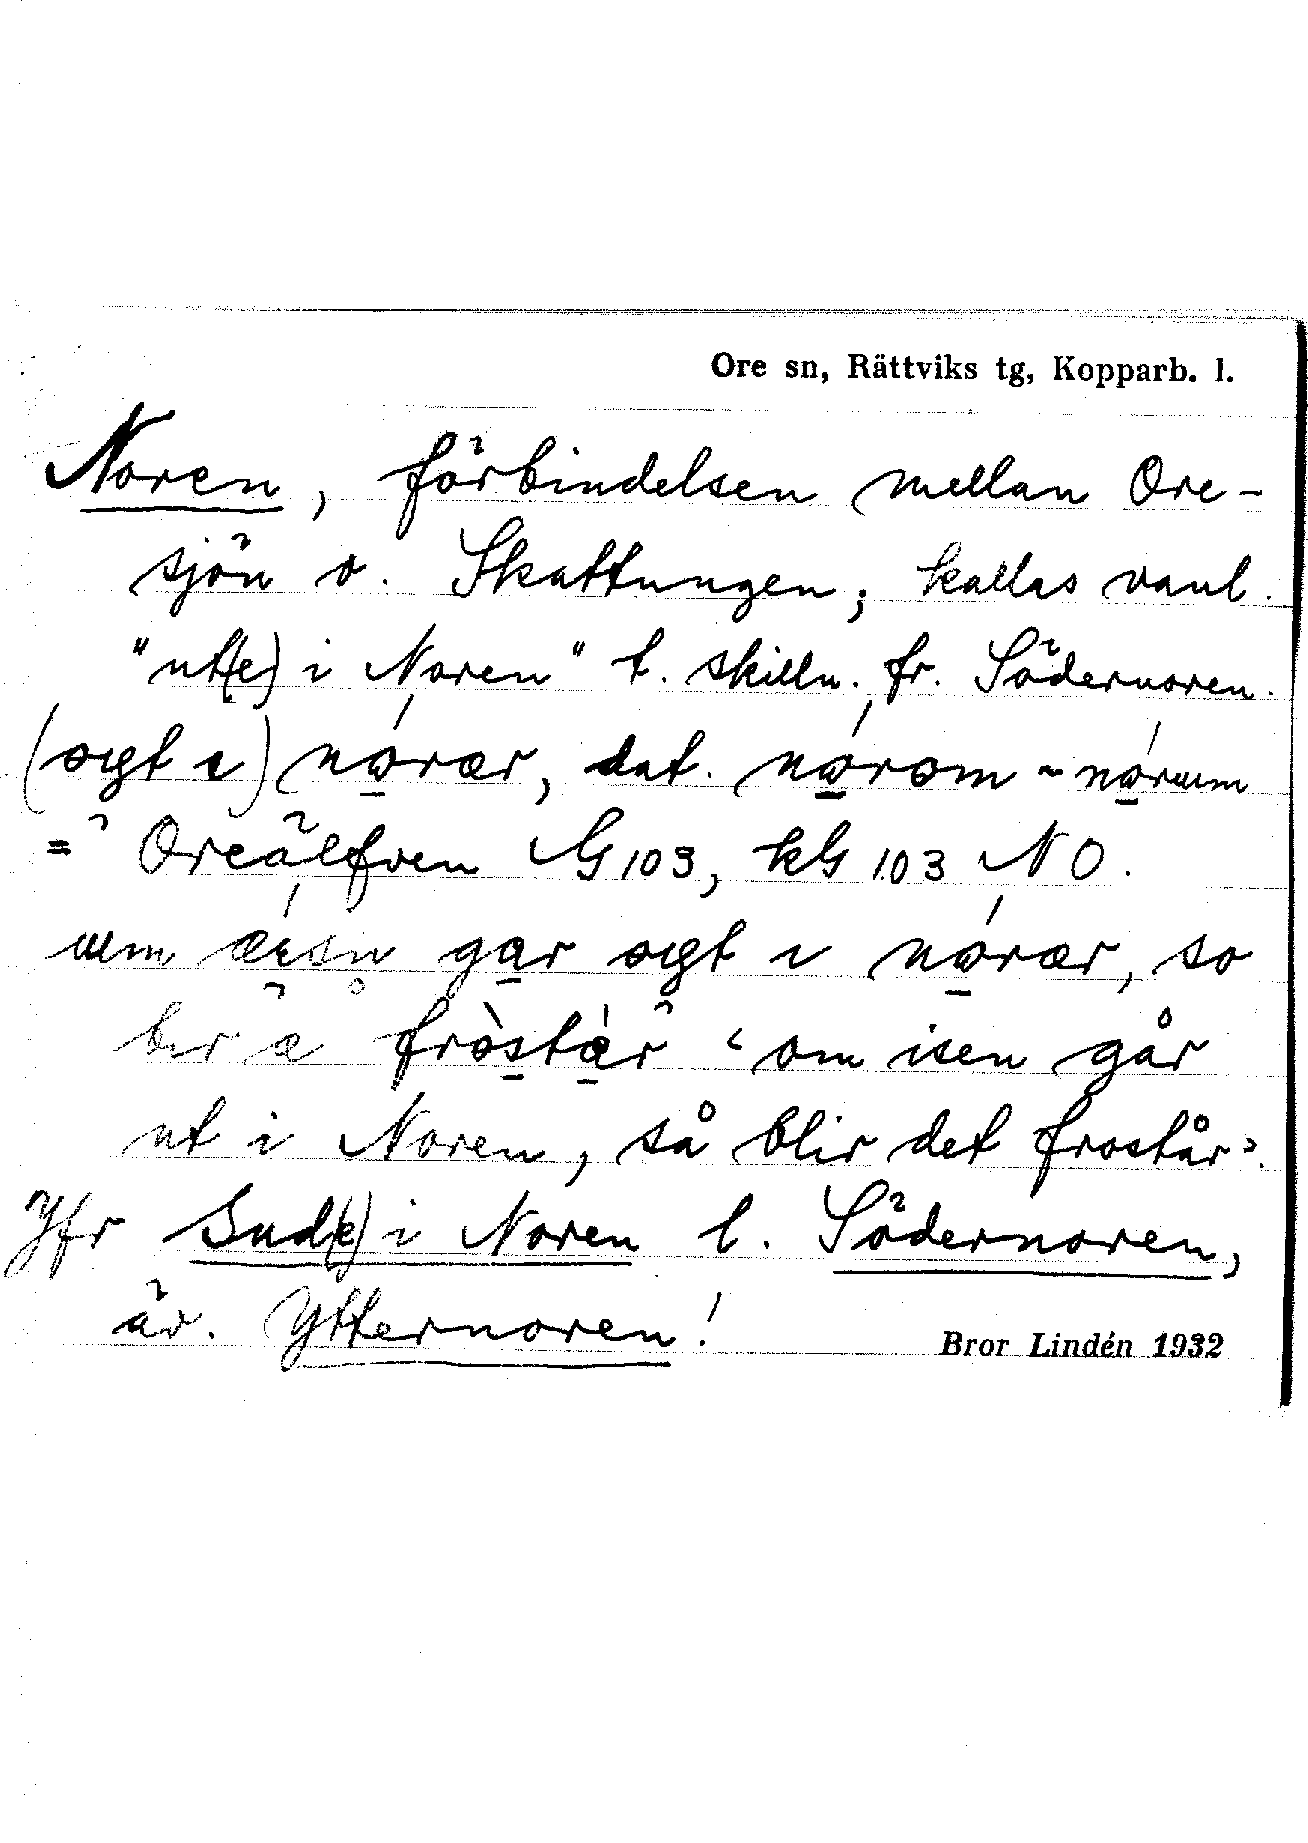 Ore sn, Rättviks tg, Kopparb. l.
Noren, förbindelsen mellan Ore-
sjön o. Skattungen; kallas vanl.
"ut(e) i Noren" t. skilln. fr. Södernoren.
dat.
= Oreälfven G 103, kG 103 NO.
gar so
‘om isen går
ut i Noren, så blir det frostår’.
Jfr Sud(e) i Noren l. Södernoren,
äv. Ytternoren!
Bror Lindén 1932